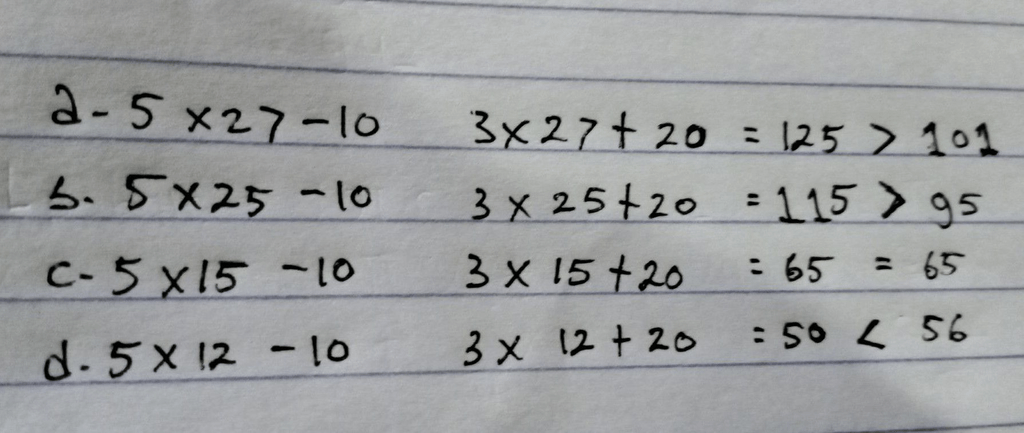 a- 5 x27-10 3x27+ 20 = 125 > 101
b. 5x25 -10 3 x 25+20 = 115 > 95
c- 5 x15 -10 3 x 15+20 = 65 = 65
d. 5 x 12 -10 3x 12 + 20 = 50 < 56